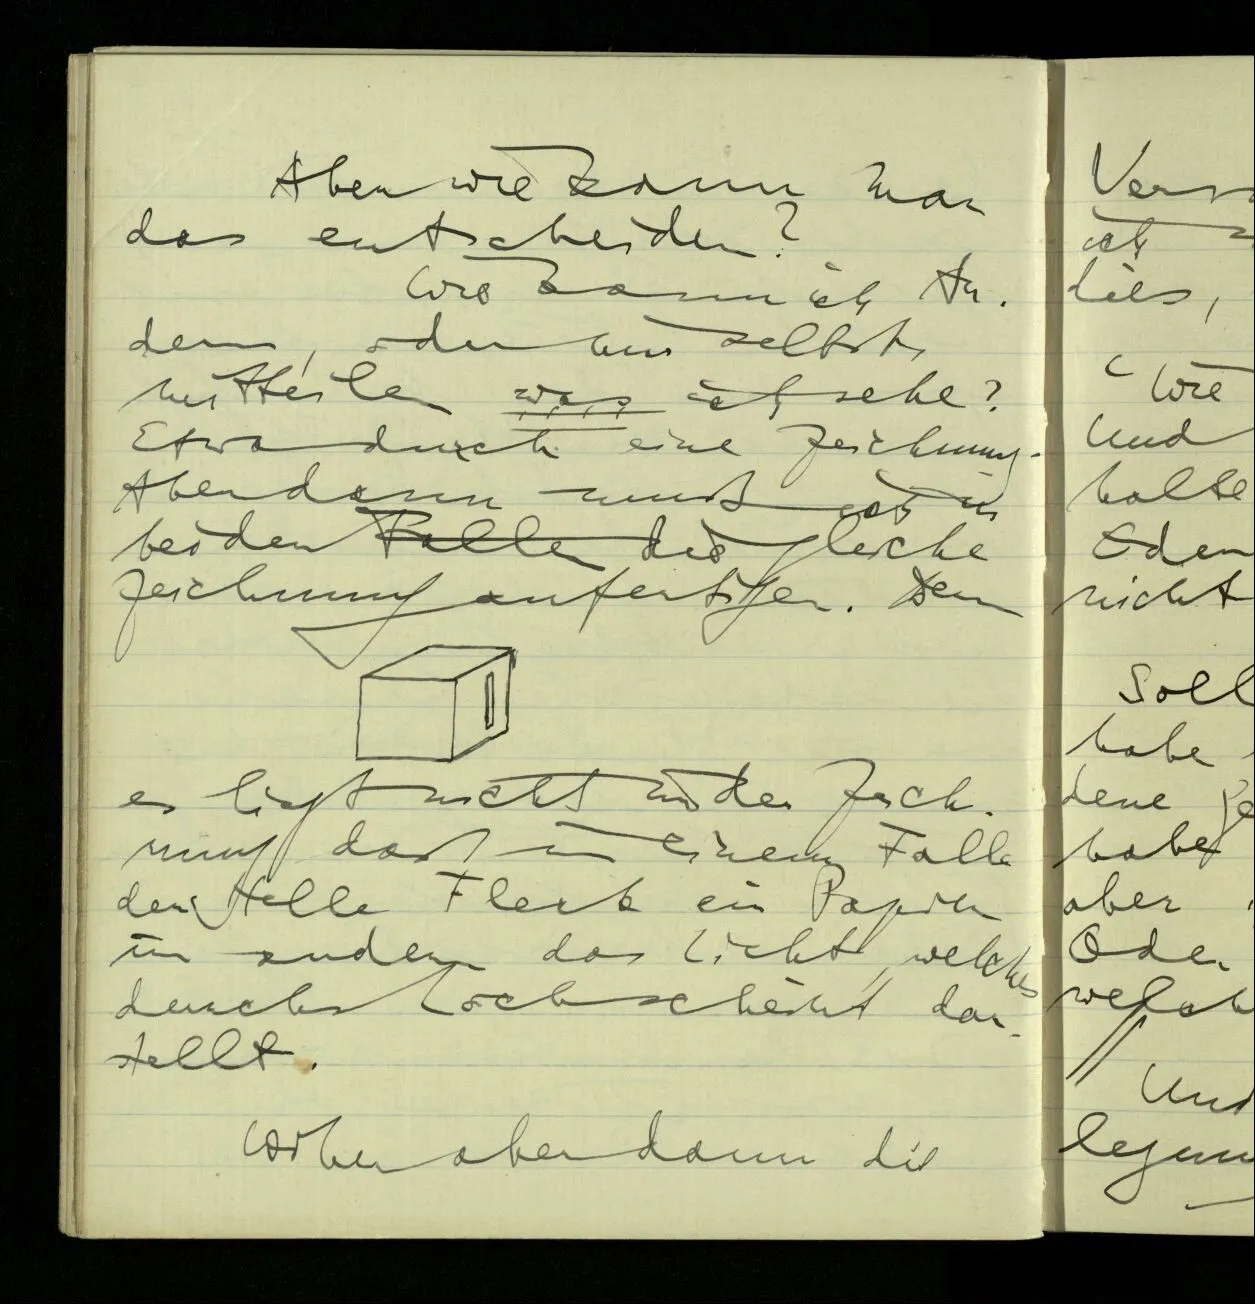 Aber wie kann man
das entscheiden?
Wie kann ich An-
dern, oder mir selbst,
mitteilen was ich sehe?
Etwa durch eine Zeichnung.
Aber dann muß ich in
beiden Fällen die gleiche
Zeichnung anfertigen. Denn
es liegt nicht in der Zeich-
nung daß in einem Falle
der helle Fleck ein Papier
im andern das Licht, welches
durchs Loch scheint dar-
stellt.
Woher aber dann die
Vers
ich
dies,
Wie
Und
halte
Oder
nicht
Soll
habe
dene
habe
aber
Oder
welch
Und
legun